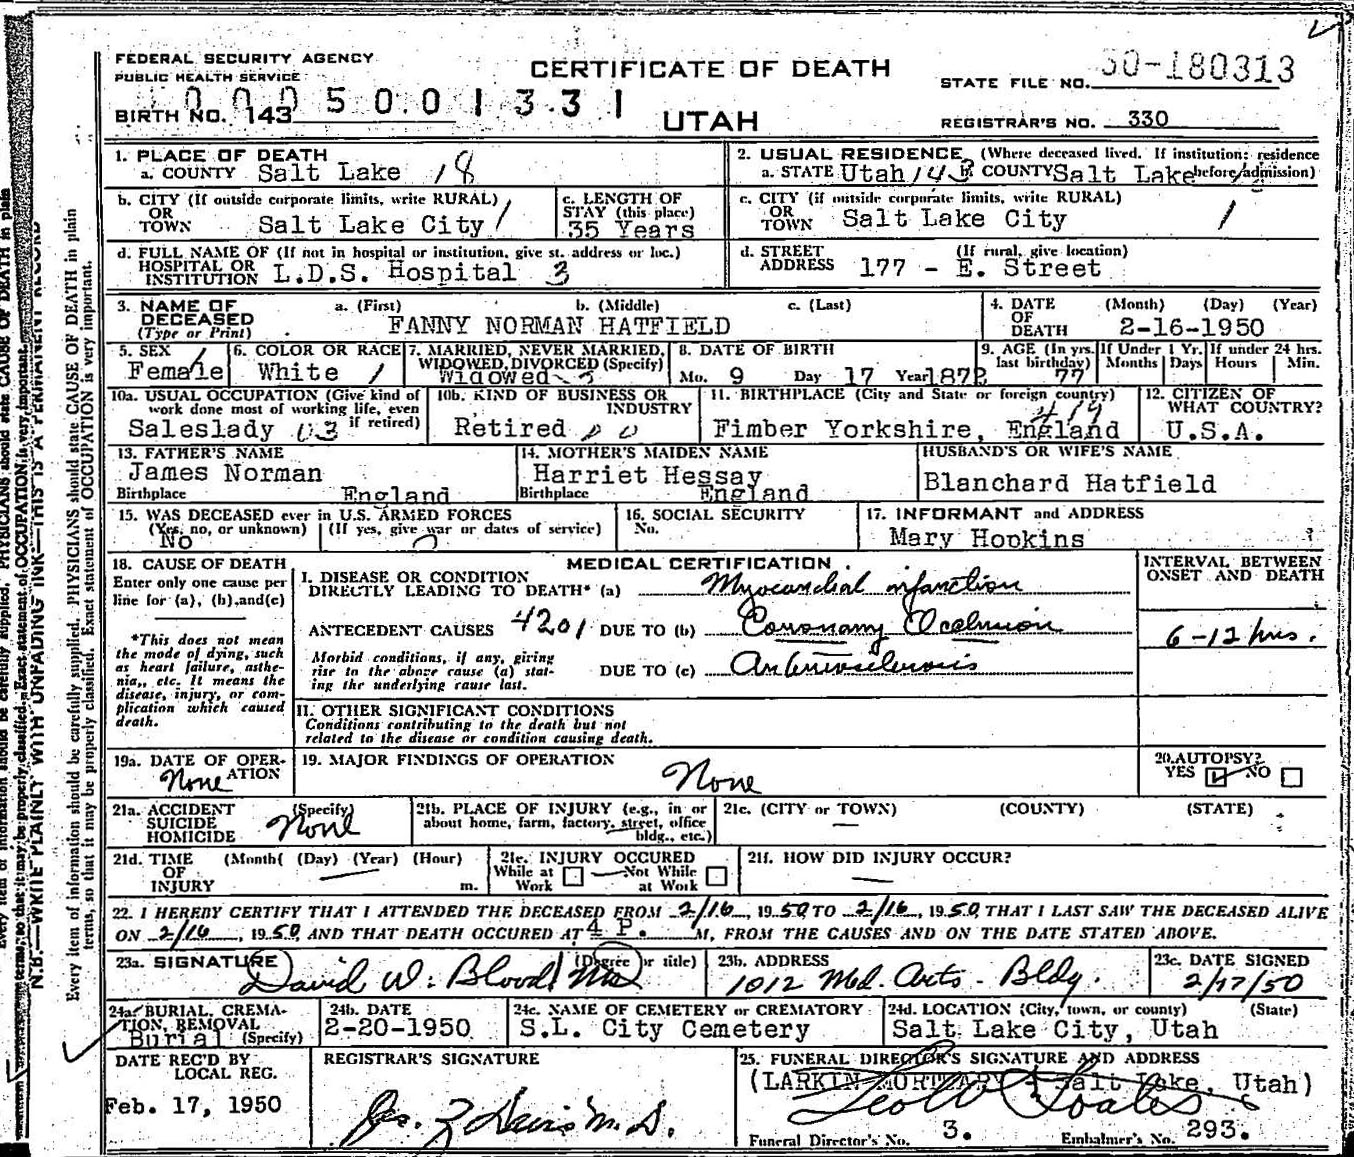 FEDERAL SECURITY AGENCY
PUBLIC HEALTH SERVICE
CERTIFICATE OF DEATH
UTAH
STATE FILE NO. 50-180313
REGISTRAR'S NO. 330
0005001331
BIRTH NO. 143
1. PLACE OF DEATH
a. COUNTY Salt Lake 18
2. USUAL RESIDENCE (Where deceased lived. If institution: residence before admission)
a. STATE Utah 143 COUNTY Salt Lake
b. CITY (If outside corporate limits, write RURAL)
OR
TOWN Salt Lake City 1
c. LENGTH OF
STAY (this place)
35 Years
c. CITY (if outside corporate limits, write RURAL)
OR
TOWN Salt Lake City 1
d. FULL NAME OF (If not in hospital or institution, give st. address or loc.)
HOSPITAL OR
INSTITUTION L.D.S. Hospital 3
d. STREET (If rural, give location)
ADDRESS 177 - E. Street
3. NAME OF a. (First) b. (Middle) c. (Last)
DECEASED
(Type or Print) FANNY NORMAN HATFIELD
4. DATE (Month) (Day) (Year)
OF
DEATH 2-16-1950
5. SEX 1
Female
6. COLOR OR RACE
White 1
7. MARRIED, NEVER MARRIED,
WIDOWED, DIVORCED (Specify)
Widowed 3
8. DATE OF BIRTH
Mo. 9 Day 17 Year 1872
9. AGE (In yrs. last birthday) 77
If Under 1 Yr.
Months Days
If under 24 hrs.
Hours Min.
10a. USUAL OCCUPATION (Give kind of
work done most of working life, even
if retired)
Saleslady 03
10b. KIND OF BUSINESS OR
INDUSTRY
Retired
11. BIRTHPLACE (City and State or foreign country)
419
Fimber Yorkshire, England
12. CITIZEN OF
WHAT COUNTRY?
U.S.A.
13. FATHER'S NAME
James Norman
Birthplace England
14. MOTHER'S MAIDEN NAME
Harriet Hessay
Birthplace England
HUSBAND'S OR WIFE'S NAME
Blanchard Hatfield
15. WAS DECEASED ever in U.S. ARMED FORCES
(Yes, no, or unknown) (If yes, give war or dates of service)
No
16. SOCIAL SECURITY
No.
17. INFORMANT and ADDRESS
Mary Hopkins
18. CAUSE OF DEATH
Enter only one cause per
line for (a), (b), and (c)
*This does not mean
the mode of dying, such
as heart failure, asthe-
nia,, etc. It means the
disease, injury, or com-
plication which caused
death.
MEDICAL CERTIFICATION
I. DISEASE OR CONDITION
DIRECTLY LEADING TO DEATH* (a) Myocardial infarction
ANTECEDENT CAUSES 4201 DUE TO (b) Coronary Occlusion
Morbid conditions, if any, giving
rise to the above cause (a) stat-
ing the underlying cause last.
DUE TO (c) Arteriosclerosis
INTERVAL BETWEEN
ONSET AND DEATH
6-12 hrs.
II. OTHER SIGNIFICANT CONDITIONS
Conditions contributing to the death but not
related to the disease or condition causing death.
19a. DATE OF OPER-
ATION
None
19. MAJOR FINDINGS OF OPERATION
None
20. AUTOPSY?
YES NO
21a. ACCIDENT (Specify)
SUICIDE
HOMICIDE None
21b. PLACE OF INJURY (e.g., in or
about home, farm, factory, street, office
bldg., etc.)
21c. (CITY or TOWN) (COUNTY) (STATE)
21d. TIME (Month( (Day) (Year) (Hour)
OF
INJURY m.
21e. INJURY OCCURED
While at Not While
Work at Work
21f. HOW DID INJURY OCCUR?
22. I HEREBY CERTIFY THAT I ATTENDED THE DECEASED FROM 2/16, 1950 TO 2/16, 1950, THAT I LAST SAW THE DECEASED ALIVE
ON 2/16, 1950, AND THAT DEATH OCCURED AT 4 P. M, FROM THE CAUSES AND ON THE DATE STATED ABOVE.
23a. SIGNATURE (Degree or title)
David W. Blood MD
23b. ADDRESS
1012 Med. Arts. Bldg.
23c. DATE SIGNED
2/17/50
24a. BURIAL, CREMA-
TION, REMOVAL
Burial (Specify)
24b. DATE
2-20-1950
24c. NAME OF CEMETERY or CREMATORY
S.L. City Cemetery
24d. LOCATION (City, town, or county) (State)
Salt Lake City, Utah
DATE REC'D BY
LOCAL REG.
Feb. 17, 1950
REGISTRAR'S SIGNATURE
M.D.
25. FUNERAL DIRECTOR'S SIGNATURE AND ADDRESS
(LARKIN MORTUARY - Salt Lake, Utah)
Funeral Director's No. 3. Embalmer's No. 293.
N.B.—WRITE PLAINLY WITH UNFADING INK—THIS IS A PERMANENT RECORD
Every item of information should be carefully supplied. PHYSICIANS should state CAUSE OF DEATH in plain
terms, so that it may be properly classified. Exact statement of OCCUPATION is very important.